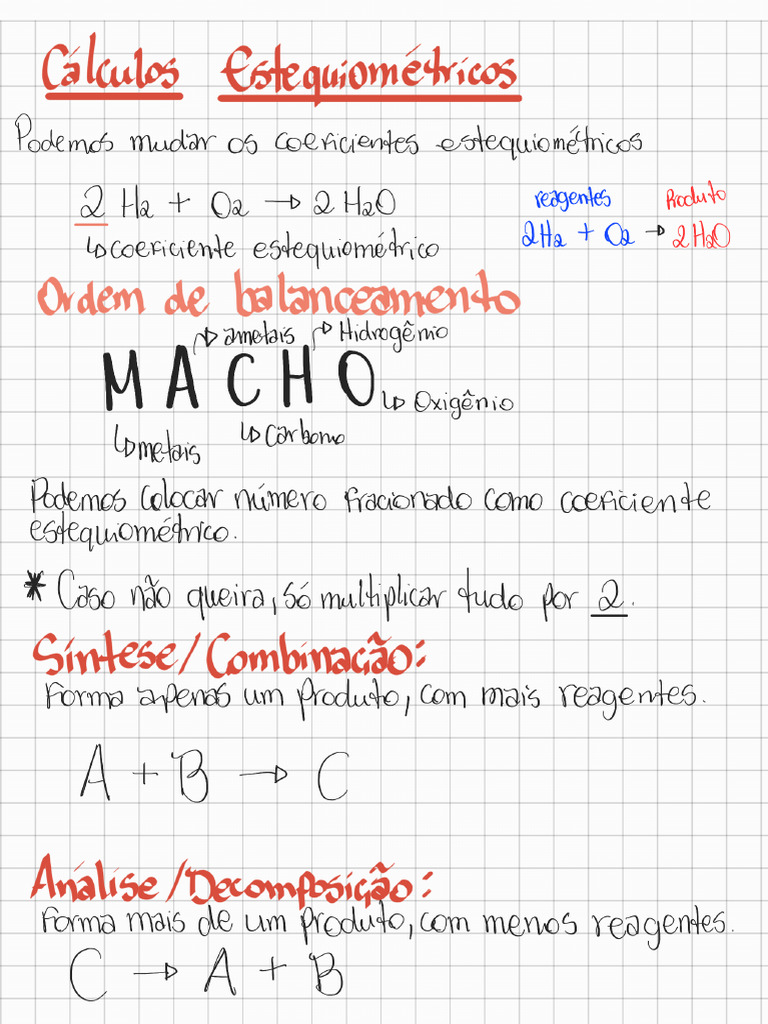 Cálculos Estequiométricos
Podemos mudar os coeficientes estequiométricos
2 H2 + O2 → 2 H2O
↳ coeficiente estequiométrico
reagentes Produto
2H2 + O2 → 2H2O
Ordem de balanceamento
↱ ametais ↱ Hidrogênio
MACHO
↳ Oxigênio
↳ metais ↳ Carbono
Podemos colocar número fracionado como coeficiente
estequiométrico.
* Caso não queira, só multiplicar tudo por 2.
Síntese/Combinação:
Forma apenas um produto, com mais reagentes.
A + B → C
Análise/Decomposição:
Forma mais de um produto, com menos reagentes.
C → A + B